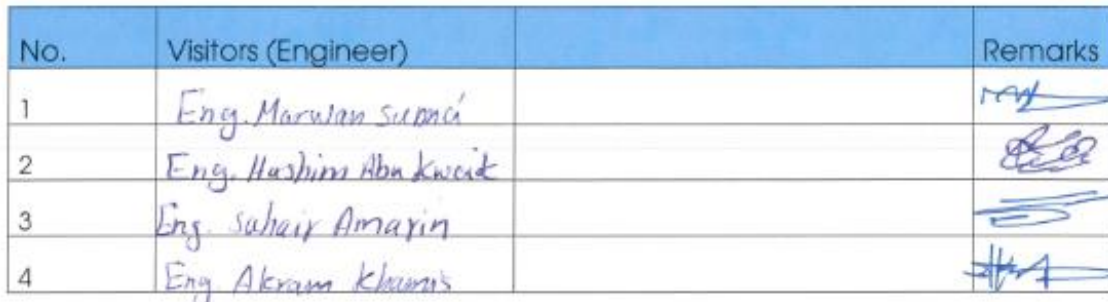 No. Visitors (Engineer) Remarks
1 Eng. Marwan
2 Eng. Hashim Abu Kweik
3 Eng. Sahair Amarin
4 Eng. Akram Khamis